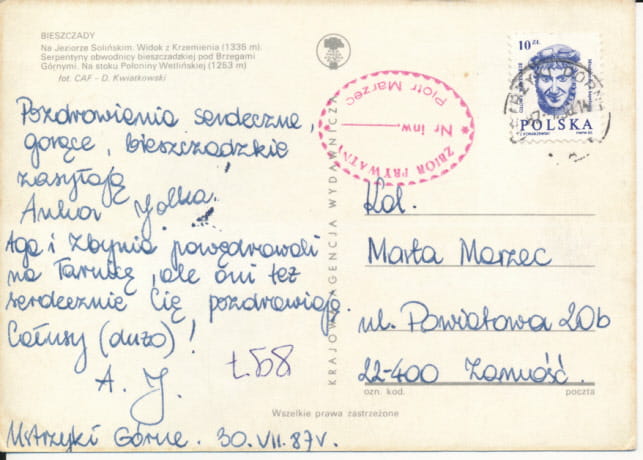 BIESZCZADY
Na Jeziorze Solińskim. Widok z Krzemienia (1335 m).
Serpentyny obwodnicy bieszczadzkiej pod Brzegami
Górnymi. Na stoku Połoniny Wetlińskiej (1253 m)
fot. CAF - D. Kwiatkowski
Pozdrowienia serdeczne,
gorące, bieszczadzkie
zasyłają
Anka i Jolka.
Aga i Zbynia powędrowali
na Tarnicę, ale oni też
serdecznie Cię pozdrawiają.
Całusy (dużo)!
A. J.
t.58
Ustrzyki Górne. 30.VII.87r.
KRAJOWA AGENCJA WYDAWNICZA
ZBIÓR PRYWATNY
Nr inw.
Piotr Marzec
10 ZŁ
POLSKA
Kol.
Marta Marzec
ul. Powiatowa 20b
22-400 Zamość.
ozn. kod. poczta
Wszelkie prawa zastrzeżone